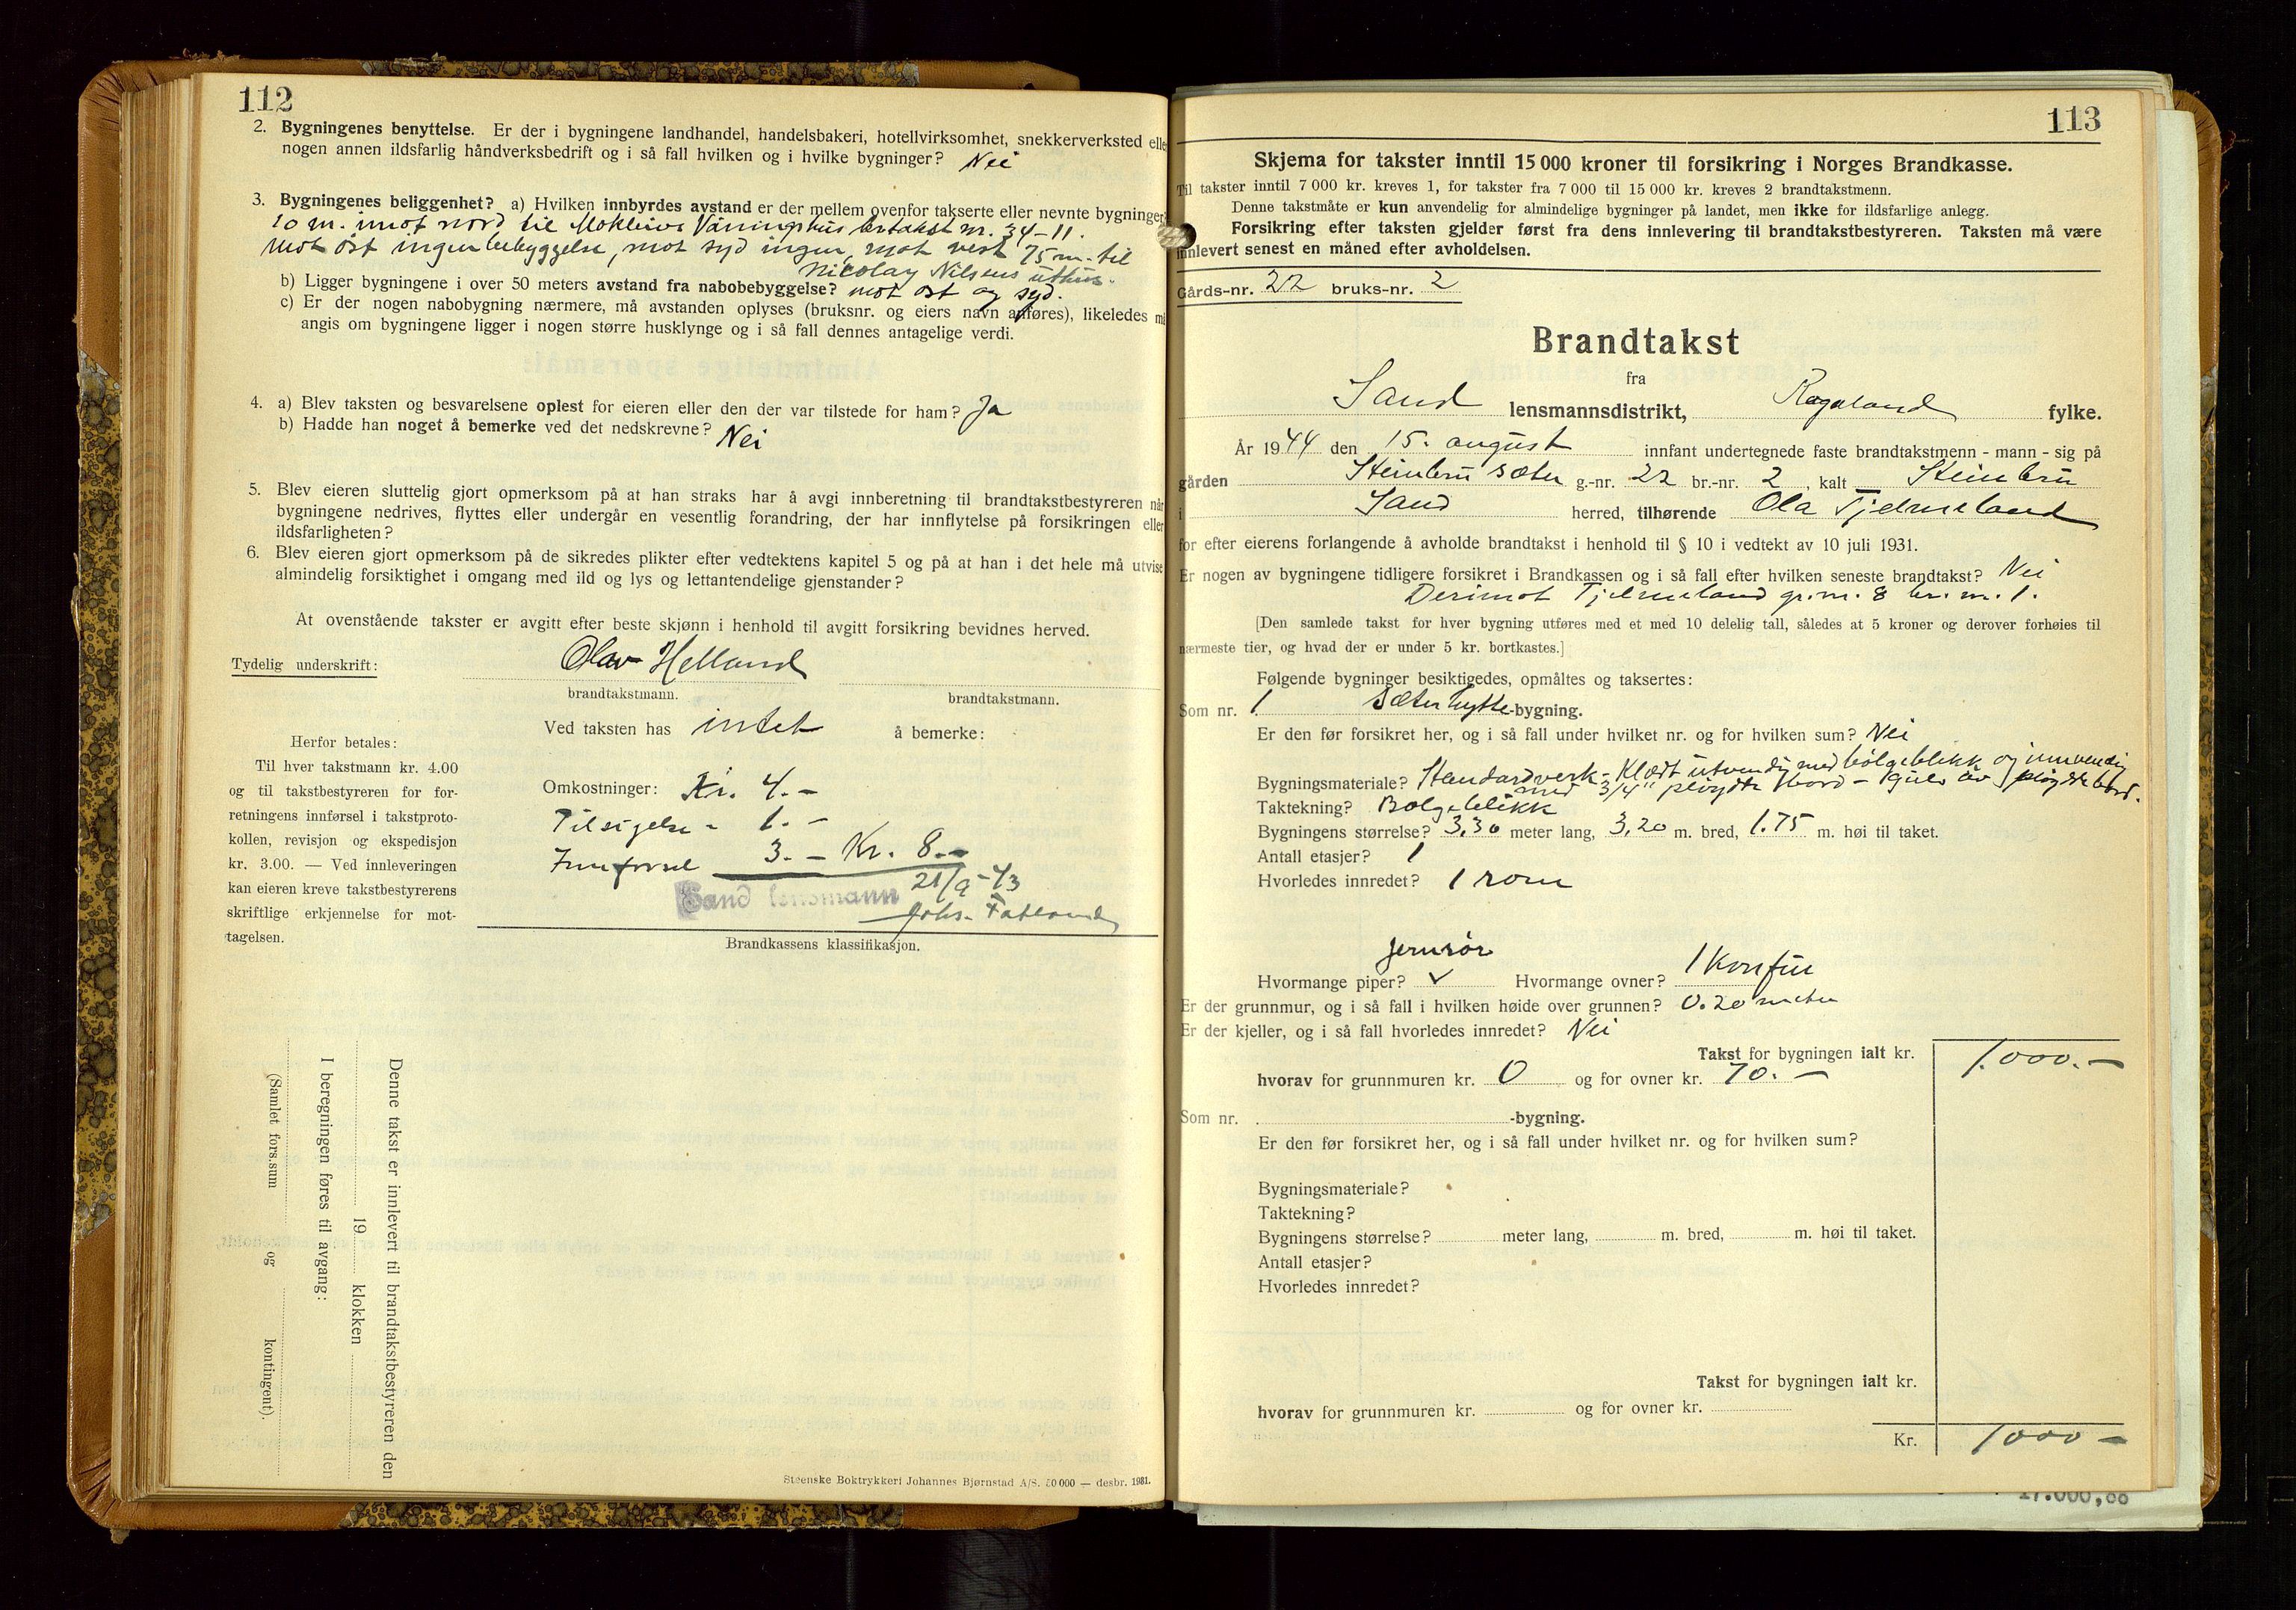 112
2. Bygningenes benyttelse. Er der i bygningene landhandel, handelsbakeri, hotellvirksomhet, snekkerverksted elle
nogen annen ildsfarlig håndverksbedrift og i så fall hvilken og i hvilke bygninger? Nei
3. Bygningenes beliggenhet? a) Hvilken innbyrdes avstand er der mellem ovenfor takserte eller nevnte bygninger?
10 m. imot nord til Mokleivs Våningshus br.takst nr. 34-11.
Mot øst ingen bebyggelse, mot syd ingen, mot vest 75 m. til
Nicolay Nilsens uthus.
b) Ligger bygningene i over 50 meters avstand fra nabobebyggelse? mot øst og syd.
c) Er der nogen nabobygning nærmere, må avstanden oplyses (bruksnr. og eiers navn anføres), likeledes m
angis om bygningene ligger i nogen større husklynge og i så fall dennes antagelige verdi.
4. a) Blev taksten og besvarelsene oplest for eieren eller den der var tilstede for ham? Ja
b) Hadde han noget å bemerke ved det nedskrevne? Nei
5. Blev eieren sluttelig gjort opmerksom på at han straks har å avgi innberetning til brandtakstbestyreren når
bygningene nedrives, flyttes eller undergår en vesentlig forandring, der har innflytelse på forsikringen eller
ildsfarligheten?
6. Blev eieren gjort opmerksom på de sikredes plikter efter vedtektens kapitel 5 og på at han i det hele må utvise
almindelig forsiktighet i omgang med ild og lys og lettantendelige gjenstander?
At ovenstående takster er avgitt efter beste skjønn i henhold til avgitt forsikring bevidnes herved.
Tydelig underskrift: Olav Helland
brandtakstmann. brandtakstmann.
Ved taksten has intet å bemerke:
Herfor betales:
Til hver takstmann kr. 4.00
og til takstbestyreren for for-
retningens innførsel i takstproto-
kollen, revisjon og ekspedisjon
kr. 3.00. — Ved innleveringen
kan eieren kreve takstbestyrerens
skriftlige erkjennelse for mot-
tagelsen.
Omkostninger: Kr. 4.-
Tilsigelse - 1.-
Innførsel 3.- Kr. 8.-
21/9-43
Sand lensmann Johs. Fatland
Brandkassens klassifikasjon.
Denne takst er innlevert til brandtakstbestyreren den
19 klokken
I beregningen føres til avgang:
(Samlet fors.sum og kontingent).
Steenske Boktrykkeri Johannes Bjørnstad A/S. 50 000 — desbr. 1931.
113
Skjema for takster inntil 15 000 kroner til forsikring i Norges Brandkasse.
Til takster inntil 7 000 kr. kreves 1, for takster fra 7 000 til 15 000 kr. kreves 2 brandtakstmenn.
Denne takstmåte er kun anvendelig for almindelige bygninger på landet, men ikke for ildsfarlige anlegg.
Forsikring efter taksten gjelder først fra dens innlevering til brandtakstbestyreren. Taksten må være
innlevert senest en måned efter avholdelsen.
Gårds-nr. 22 bruks-nr. 2
Brandtakst
fra
Sand lensmannsdistrikt, Rogaland fylke.
År 1944 den 15. august innfant undertegnede faste brandtakstmenn - mann - sig på
gården Steinbru sæter g.-nr. 22 br.-nr. 2, kalt Steinbru
i Sand herred, tilhørende Ola Tjelmeland
for efter eierens forlangende å avholde brandtakst i henhold til § 10 i vedtekt av 10 juli 1931.
Er nogen av bygningene tidligere forsikret i Brandkassen og i så fall efter hvilken seneste brandtakst? Nei
Derimot Tjelmeland gr.nr. 8 br. nr. 1.
[Den samlede takst for hver bygning utføres med et med 10 delelig tall, således at 5 kroner og derover forhøies til
nærmeste tier, og hvad der er under 5 kr. bortkastes.]
Følgende bygninger besiktigedes, opmåltes og taksertes:
Som nr. 1 Sæterhytte-bygning.
Er den før forsikret her, og i så fall under hvilket nr. og for hvilken sum? Nei
Bygningsmateriale? Standardverk - Klædt utvendig med bølgeblikk og innvendig
med 3/4" pløyde bord - gulv av pløyde bord.
Taktekning? Bølgeblikk
Bygningens størrelse? 3,30 meter lang, 3,20 m. bred, 1.75 m. høi til taket.
Antall etasjer? 1
Hvorledes innredet? 1 rom
jernrør
Hvormange piper? Hvormange ovner? 1 Komfur
Er der grunnmur, og i så fall i hvilken høide over grunnen? 0.20 meter
Er der kjeller, og i så fall hvorledes innredet? Nei
Takst for bygningen ialt kr. 1.000.-
hvorav for grunnmuren kr. 0 og for ovner kr. 70.-
Som nr. -bygning.
Er den før forsikret her, og i så fall under hvilket nr. og for hvilken sum?
Bygningsmateriale?
Taktekning?
Bygningens størrelse? meter lang, m. bred, m. høi til taket.
Antall etasjer?
Hvorledes innredet?
Takst for bygningen ialt kr.
hvorav for grunnmuren kr. og for ovner kr.
Kr. 1000 -